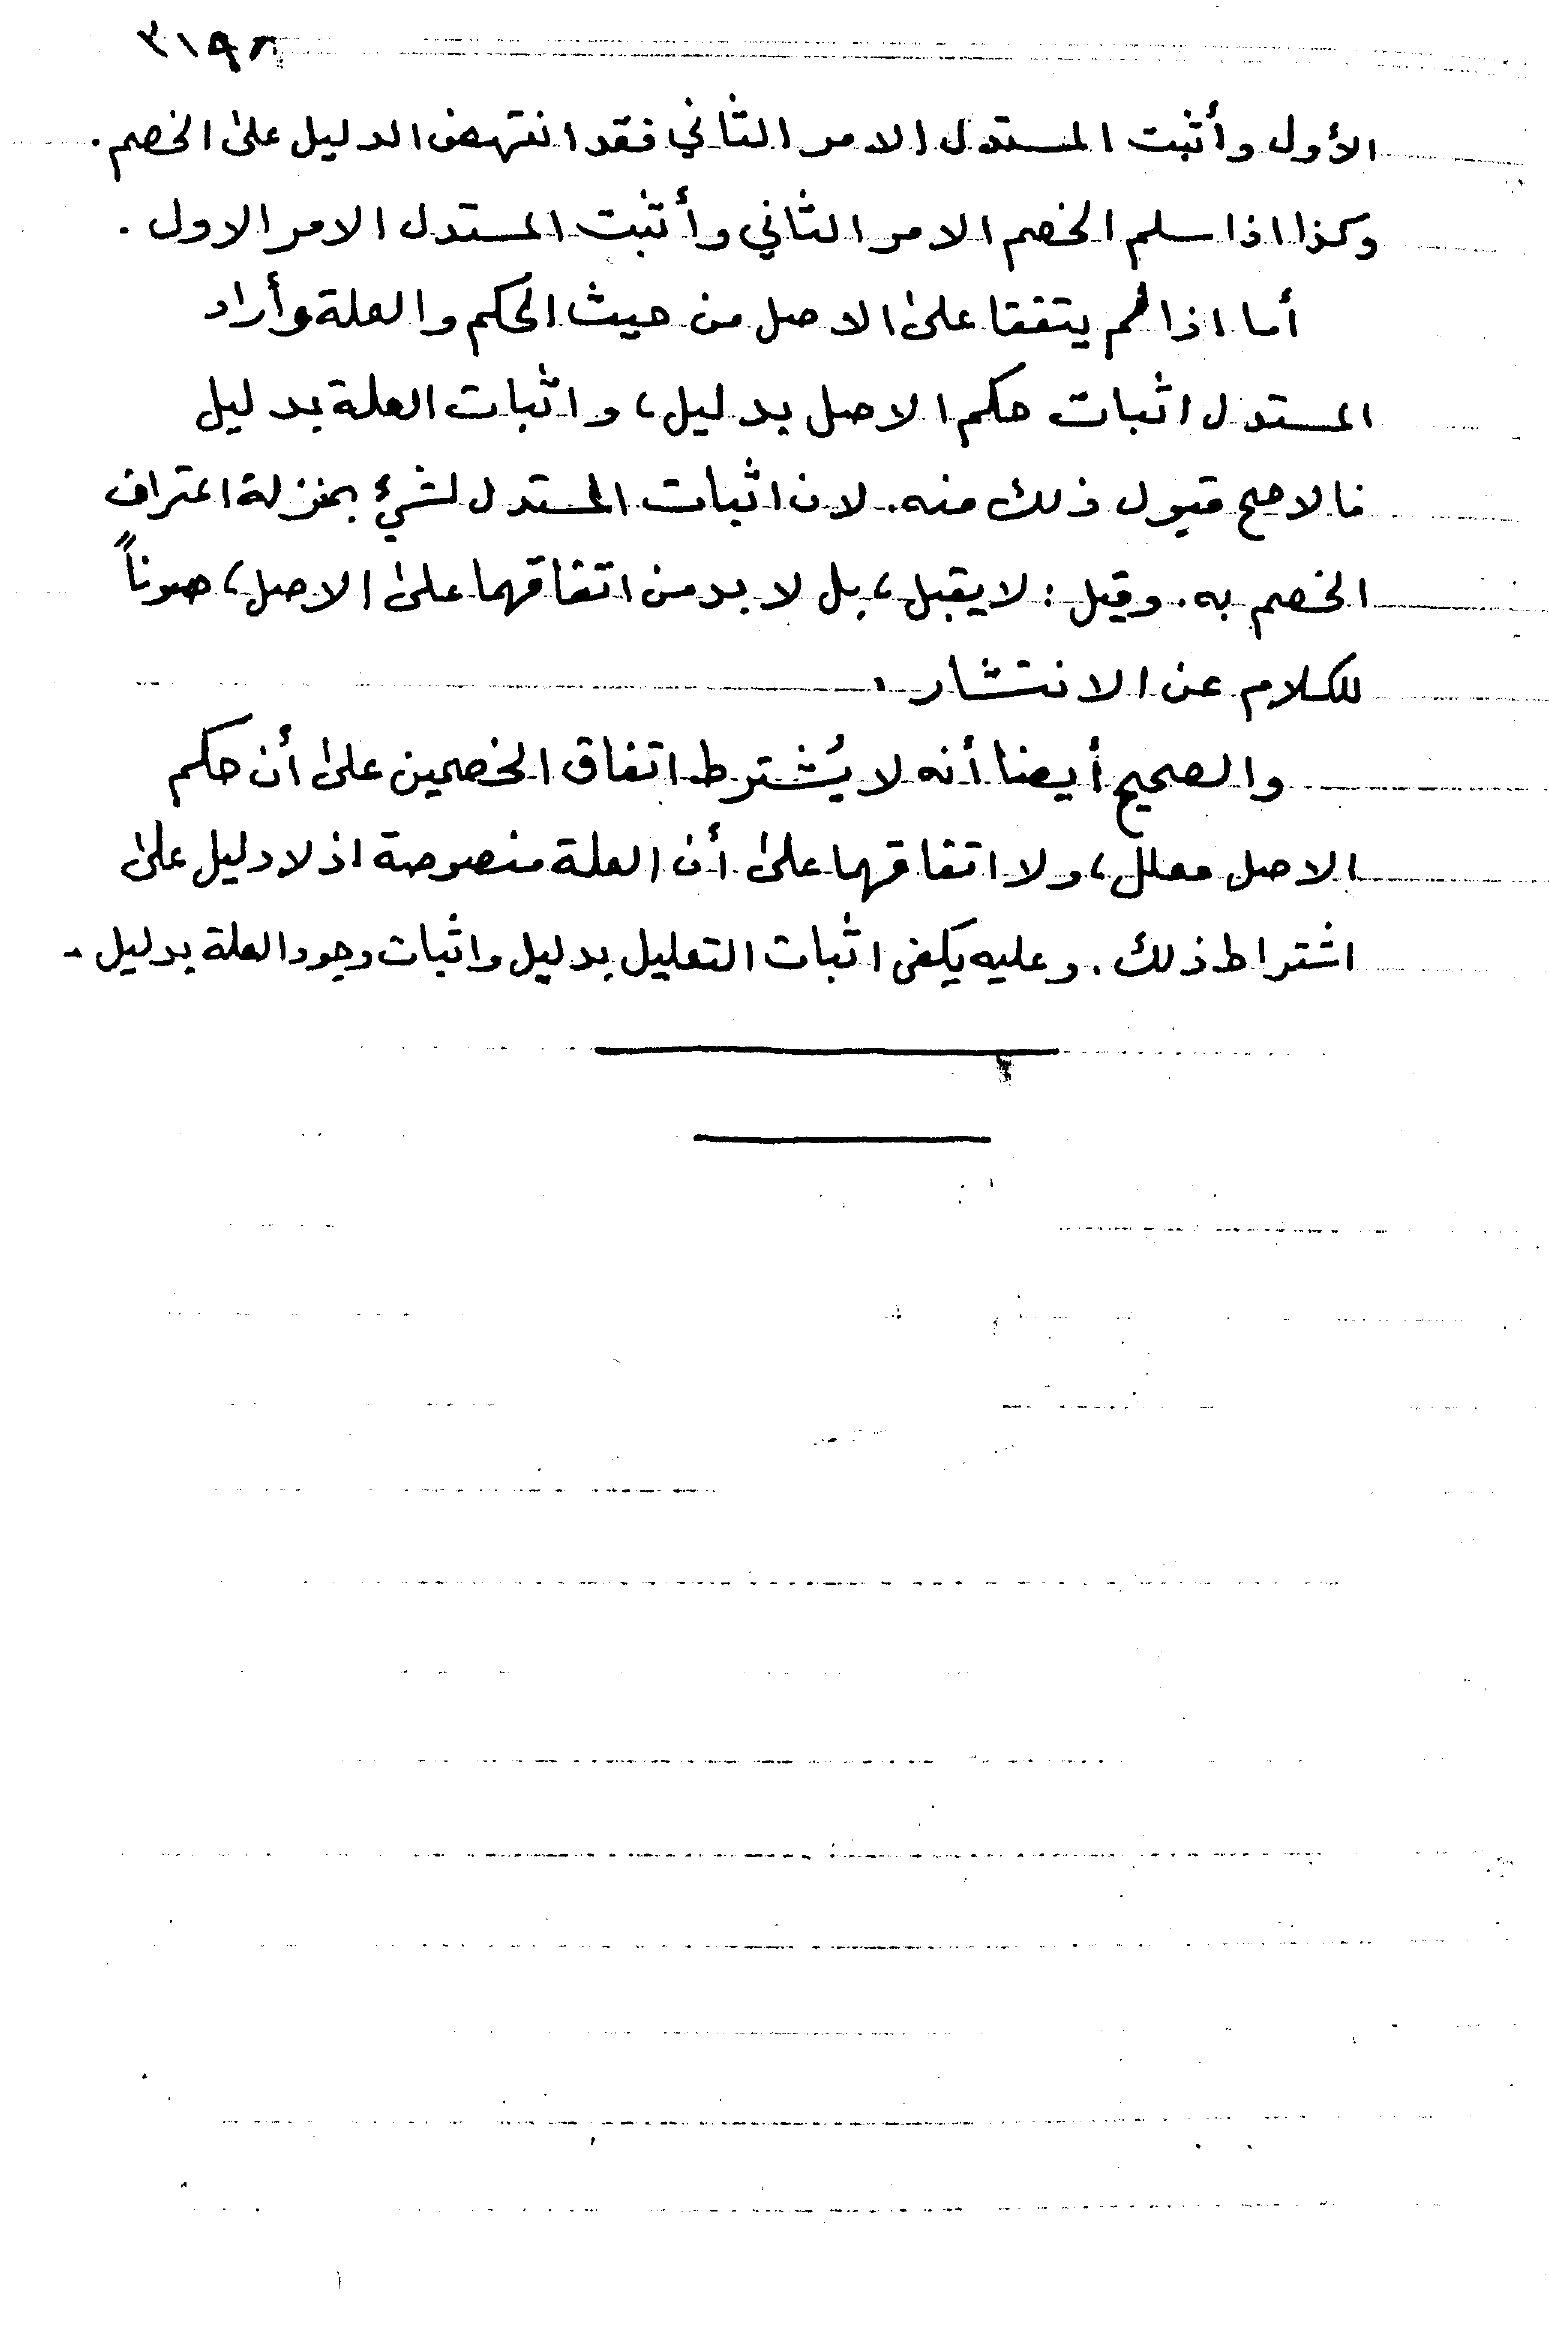 الأول وأثبت المستدل الامر الثاني فقد انتهض الدليل على الخصم.
وكذا اذا سلم الخصم الامر الثاني وأثبت المستدل الامر الاول .
أما اذا لم يتفقا على الاصل من حيث الحكم والعلة وأراد
المستدل اثبات حكم الاصل بدليل، واثبات العلة بدليل
فالاصح قبول ذلك منه. لان اثبات المستدل لشيء بمنزلة اعتراف
الخصم به. وقيل: لا يقبل، بل لا بد من اتفاقهما على الاصل، صوناً
للكلام عن الانتشار .
والصحيح أيضا أنه لا يُشترط اتفاق الخصمين على أن حكم
الاصل معلل، ولا اتفاقهما على أن العلة منصوصة اذ لا دليل على
اشتراط ذلك. وعليه يكفى اثبات التعليل بدليل واثبات وجود العلة بدليل .